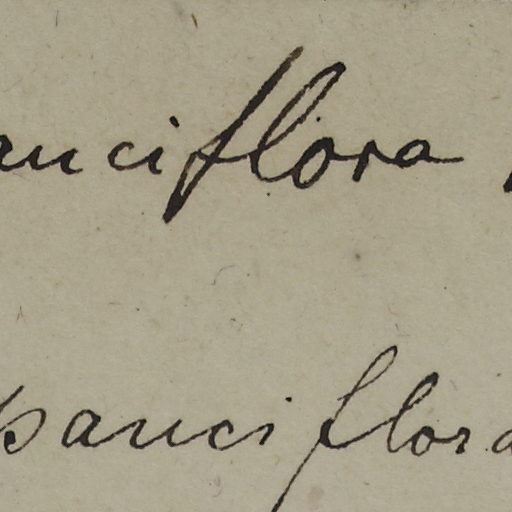 auciflora
pauciflora